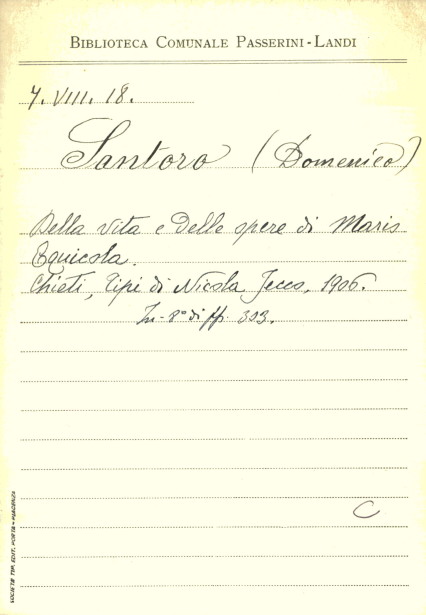 BIBLIOTECA COMUNALE PASSERINI-LANDI
7. VIII. 18.
Santoro (Domenico)
Della vita e delle opere di Mario
Equicola.
Chieti, Tipi di Nicola Jecco, 1906.
In-8° di pp. 303.
C
SOCIETÀ TIP. EDIT. PORTA - PIACENZA